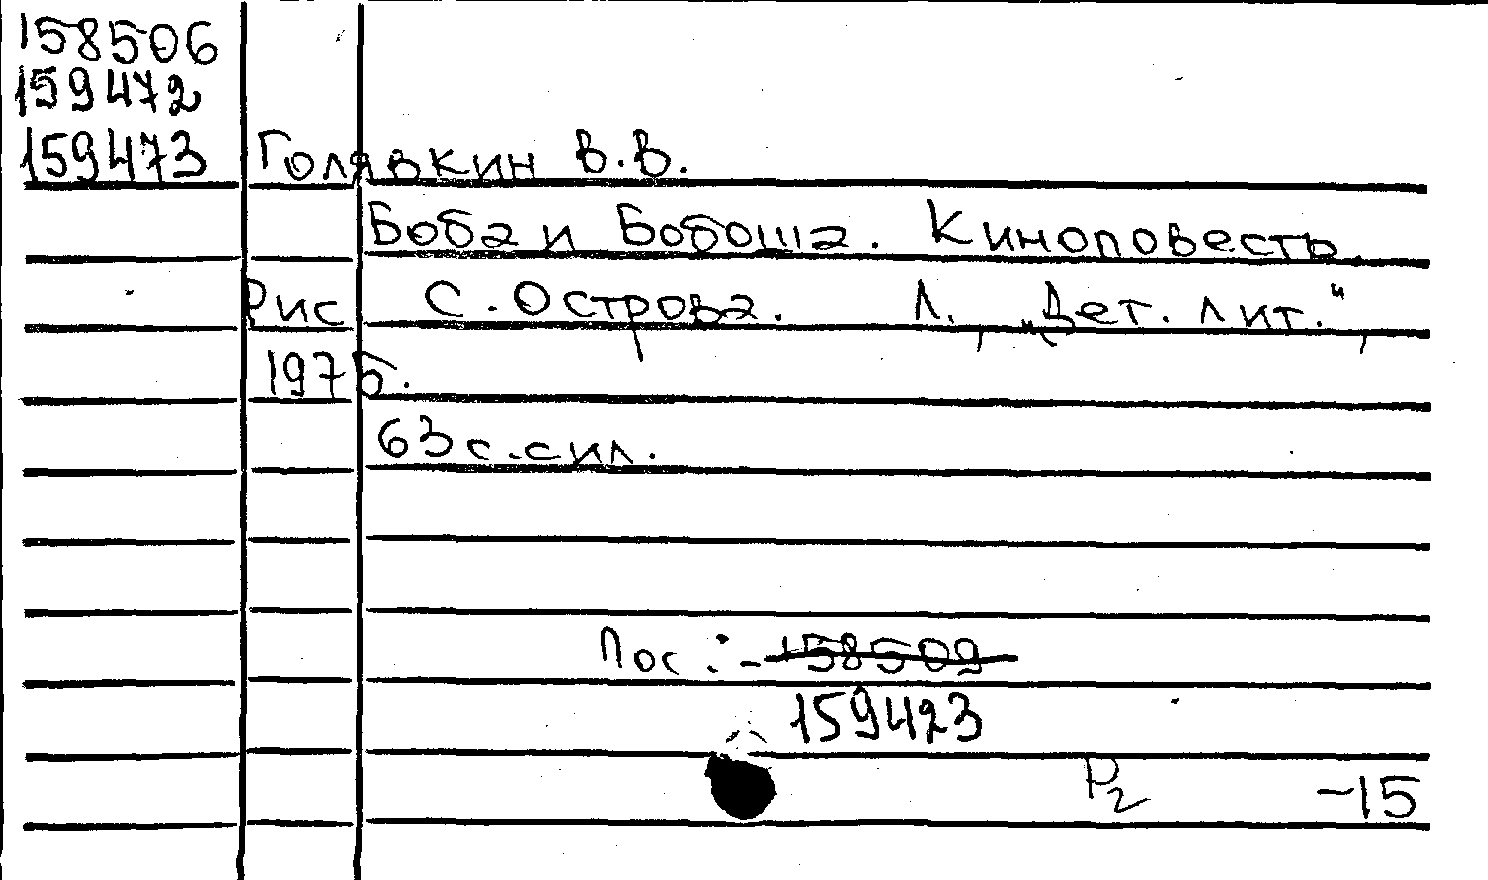 158506
159472
159473 Голявкин В.В.
Боба и Бобоша. Киноповесть.
Рис С. Острова. Л., „Дет. лит.“,
1975.
63 с. с ил.
Пос.: - 158509
159423
Р2 -15